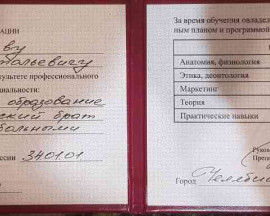 АЦИИ
ву
тольевичу
культете профессионального
циальности:
образование
ский брат
больными
ссии 340101
За время обучения овладе
ным планом и программой
Анатомия, физиология
Этика, деонтология
Маркетинг
Теория
Практические навыки
Руково
Предсе
Город Челяби